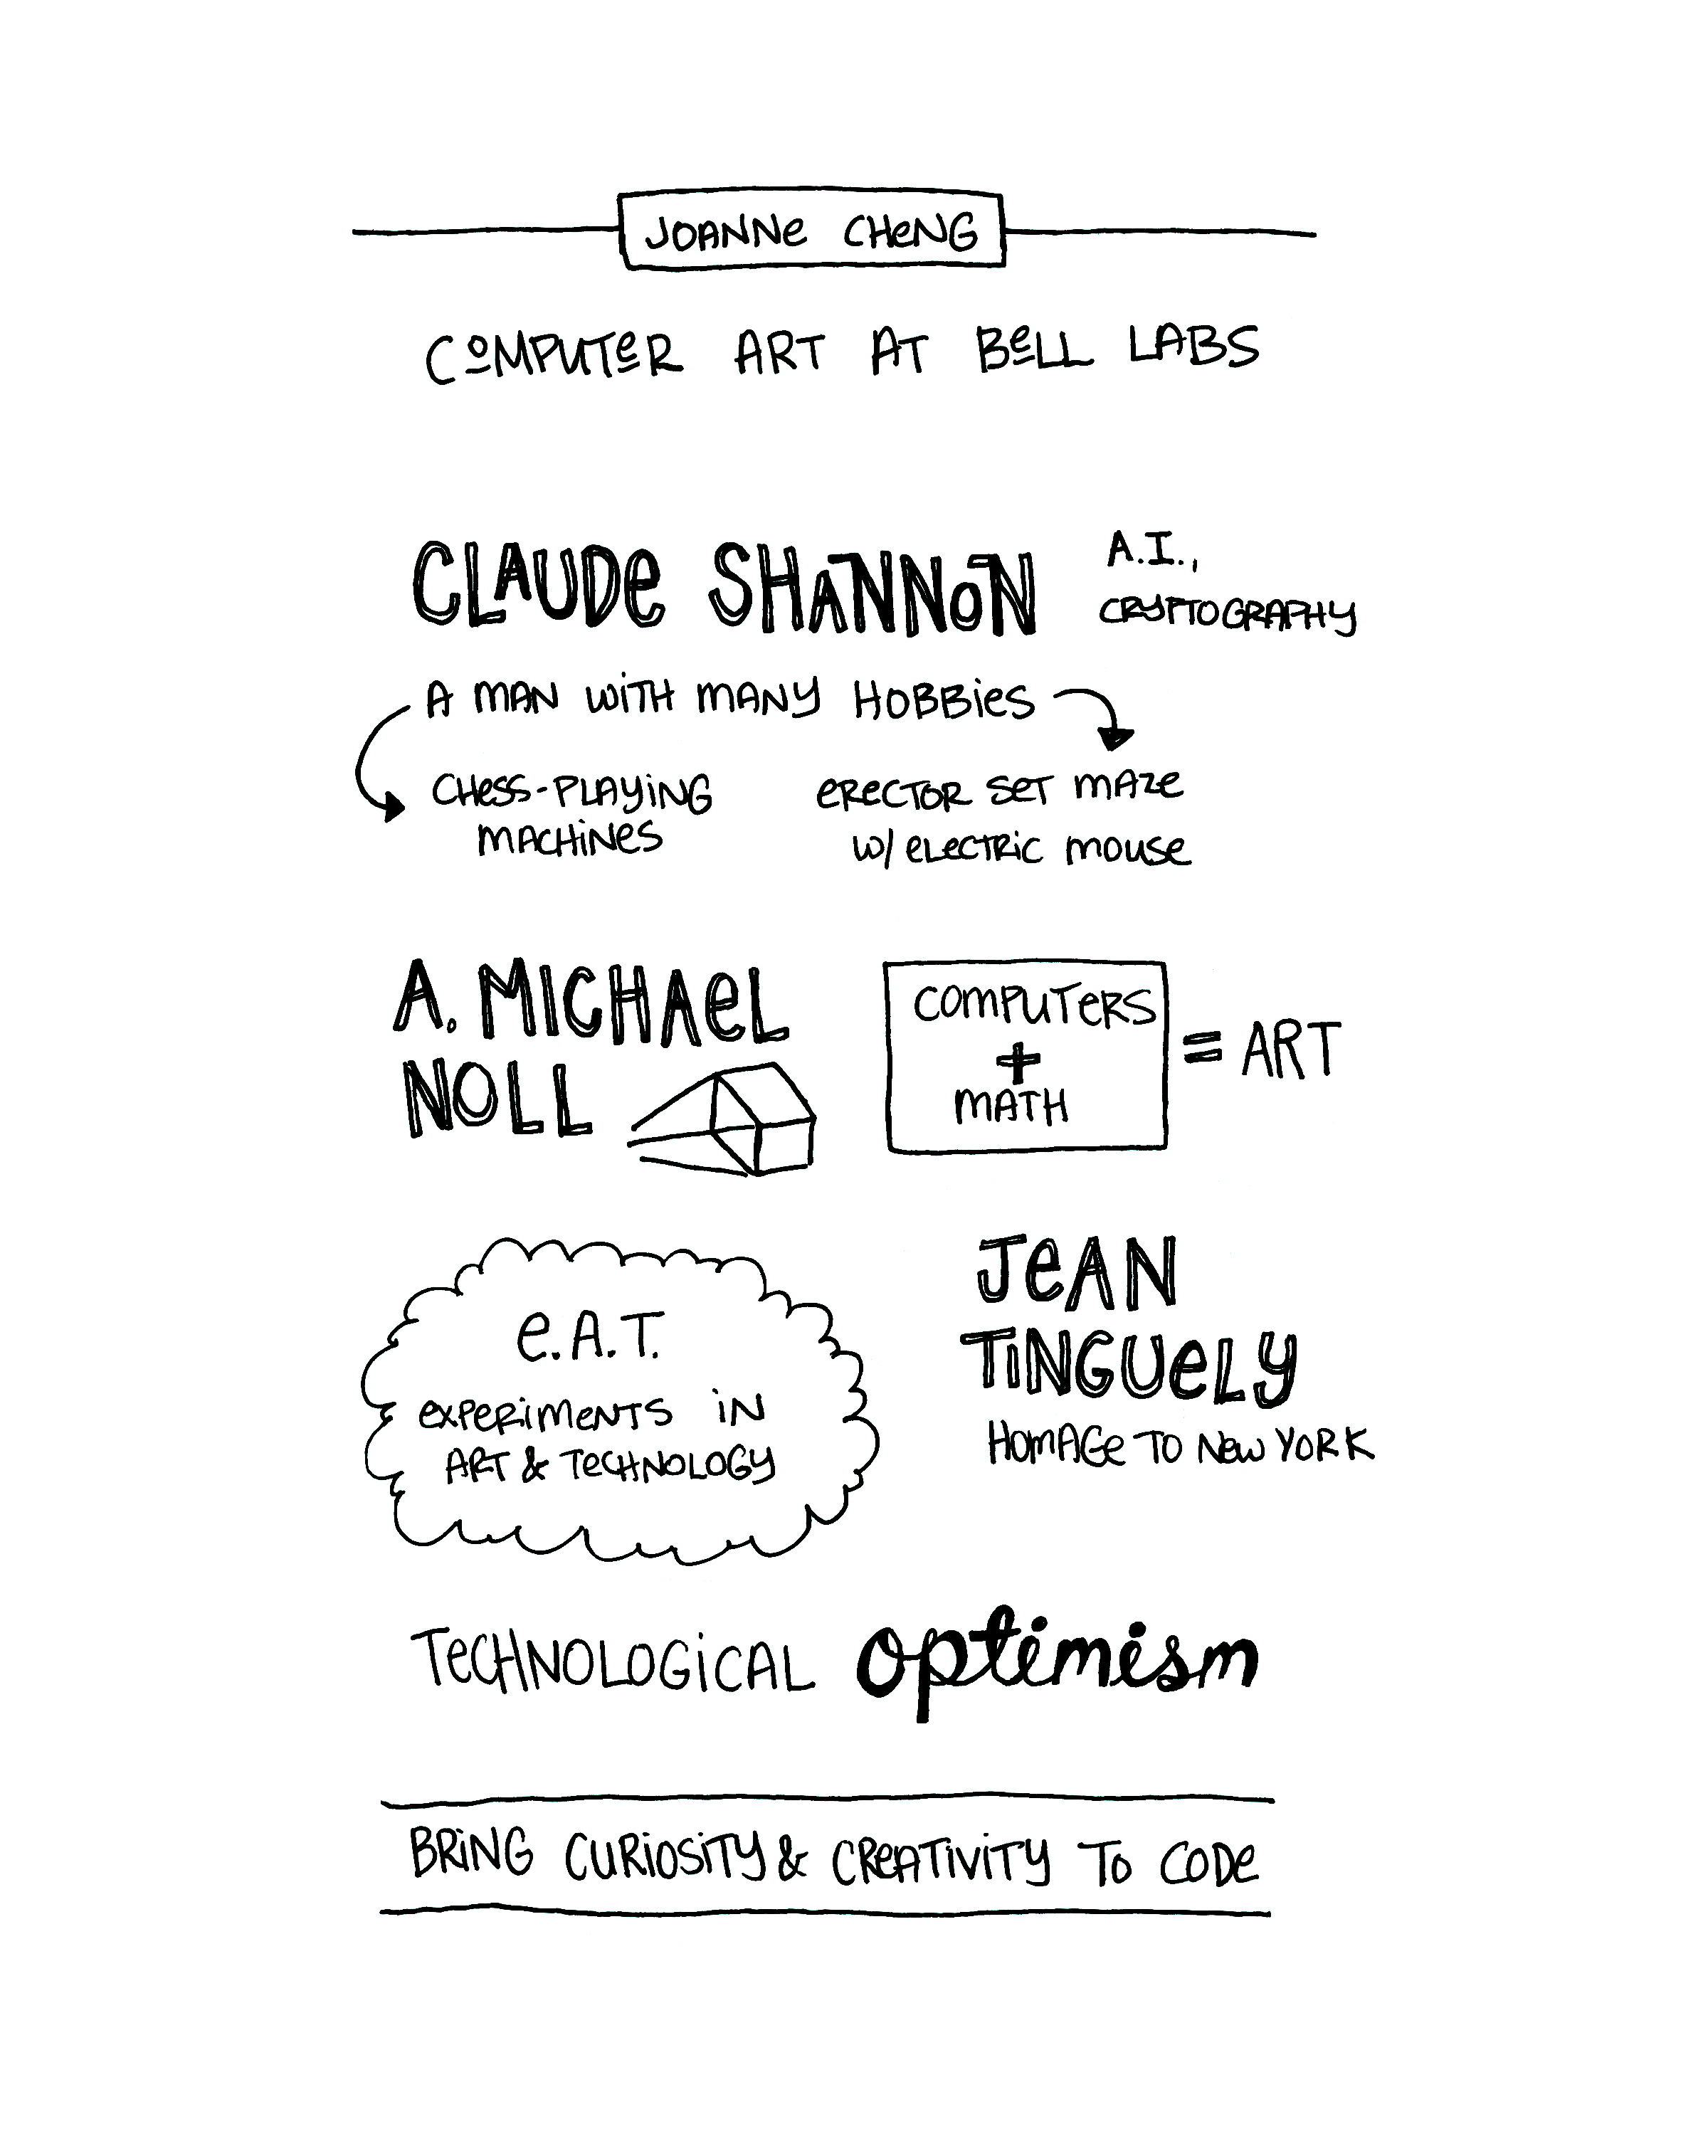 JOANNE CHENG
COMPUTER ART AT BELL LABS
CLAUDE SHANNON
A.I.,
CRYPTOGRAPHY
A MAN WITH MANY HOBBIES
CHESS-PLAYING
MACHINES
ERECTOR SET MAZE
W/ ELECTRIC MOUSE
A. MICHAEL
NOLL
COMPUTERS
+
MATH
= ART
E.A.T.
EXPERIMENTS IN
ART & TECHNOLOGY
JEAN
TINGUELY
HOMAGE TO NEW YORK
TECHNOLOGICAL optimism
BRING CURIOSITY & CREATIVITY TO CODE